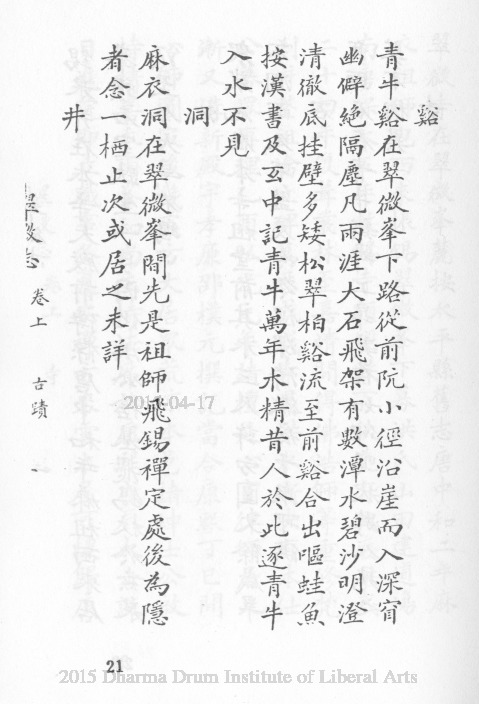 谿
青牛谿在翠微峯下路從前阮小徑沿崖而入深窅
幽僻絕隔塵凡兩涯大石飛架有數潭水碧沙明澄
清徹底挂壁多矮松翠柏谿流至前谿合出嘔蛙魚
按漢書及玄中記青牛萬年木精昔人於此逐青牛
入水不見
洞
麻衣洞在翠微峯間先是祖師飛錫禪定處後為隱
者念一栖止次或居之未詳
井
翠微志
卷上
古蹟
一
2015-04-17
21
2015 Dharma Drum Institute of Liberal Arts